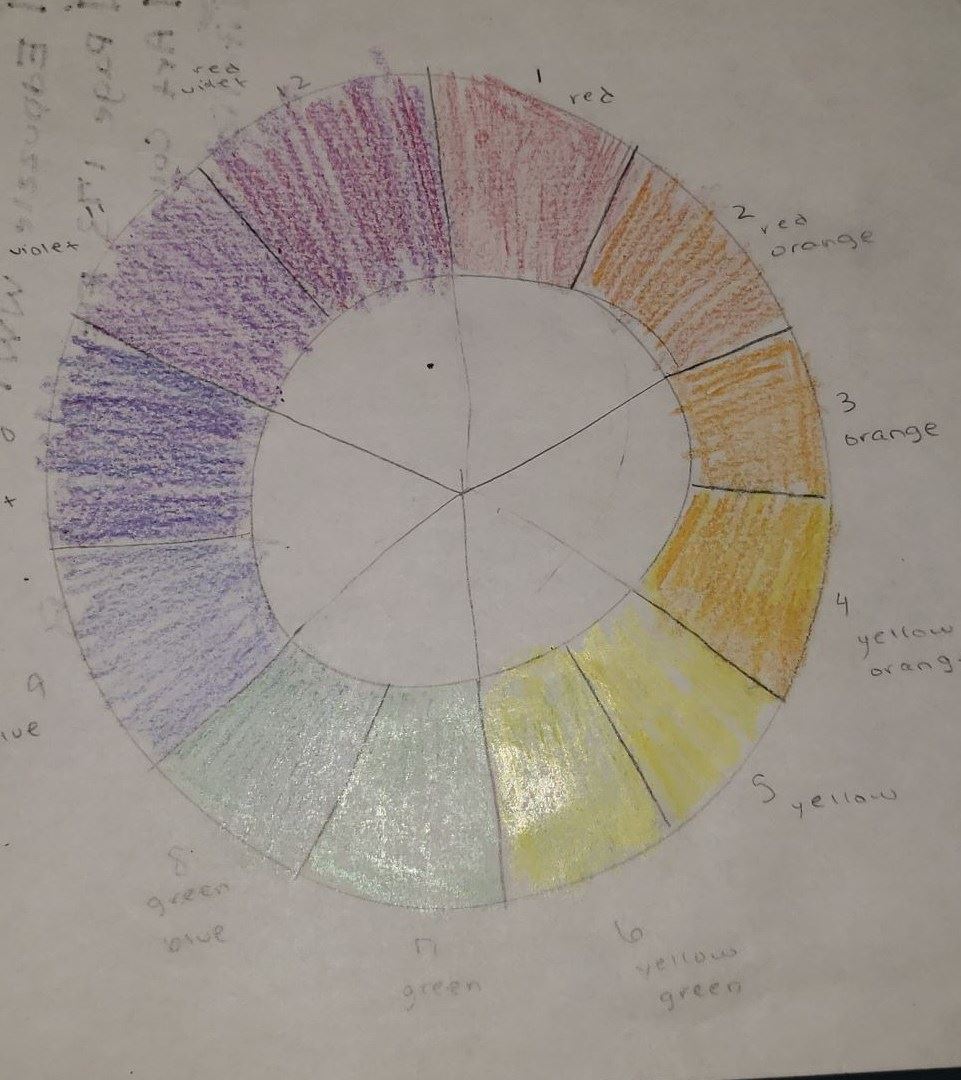 1
red
2
red
orange
3
orange
4
yellow
orang
5
yellow
6
yellow
green
7
green
8
green
blue
9
violet
12
red
violet